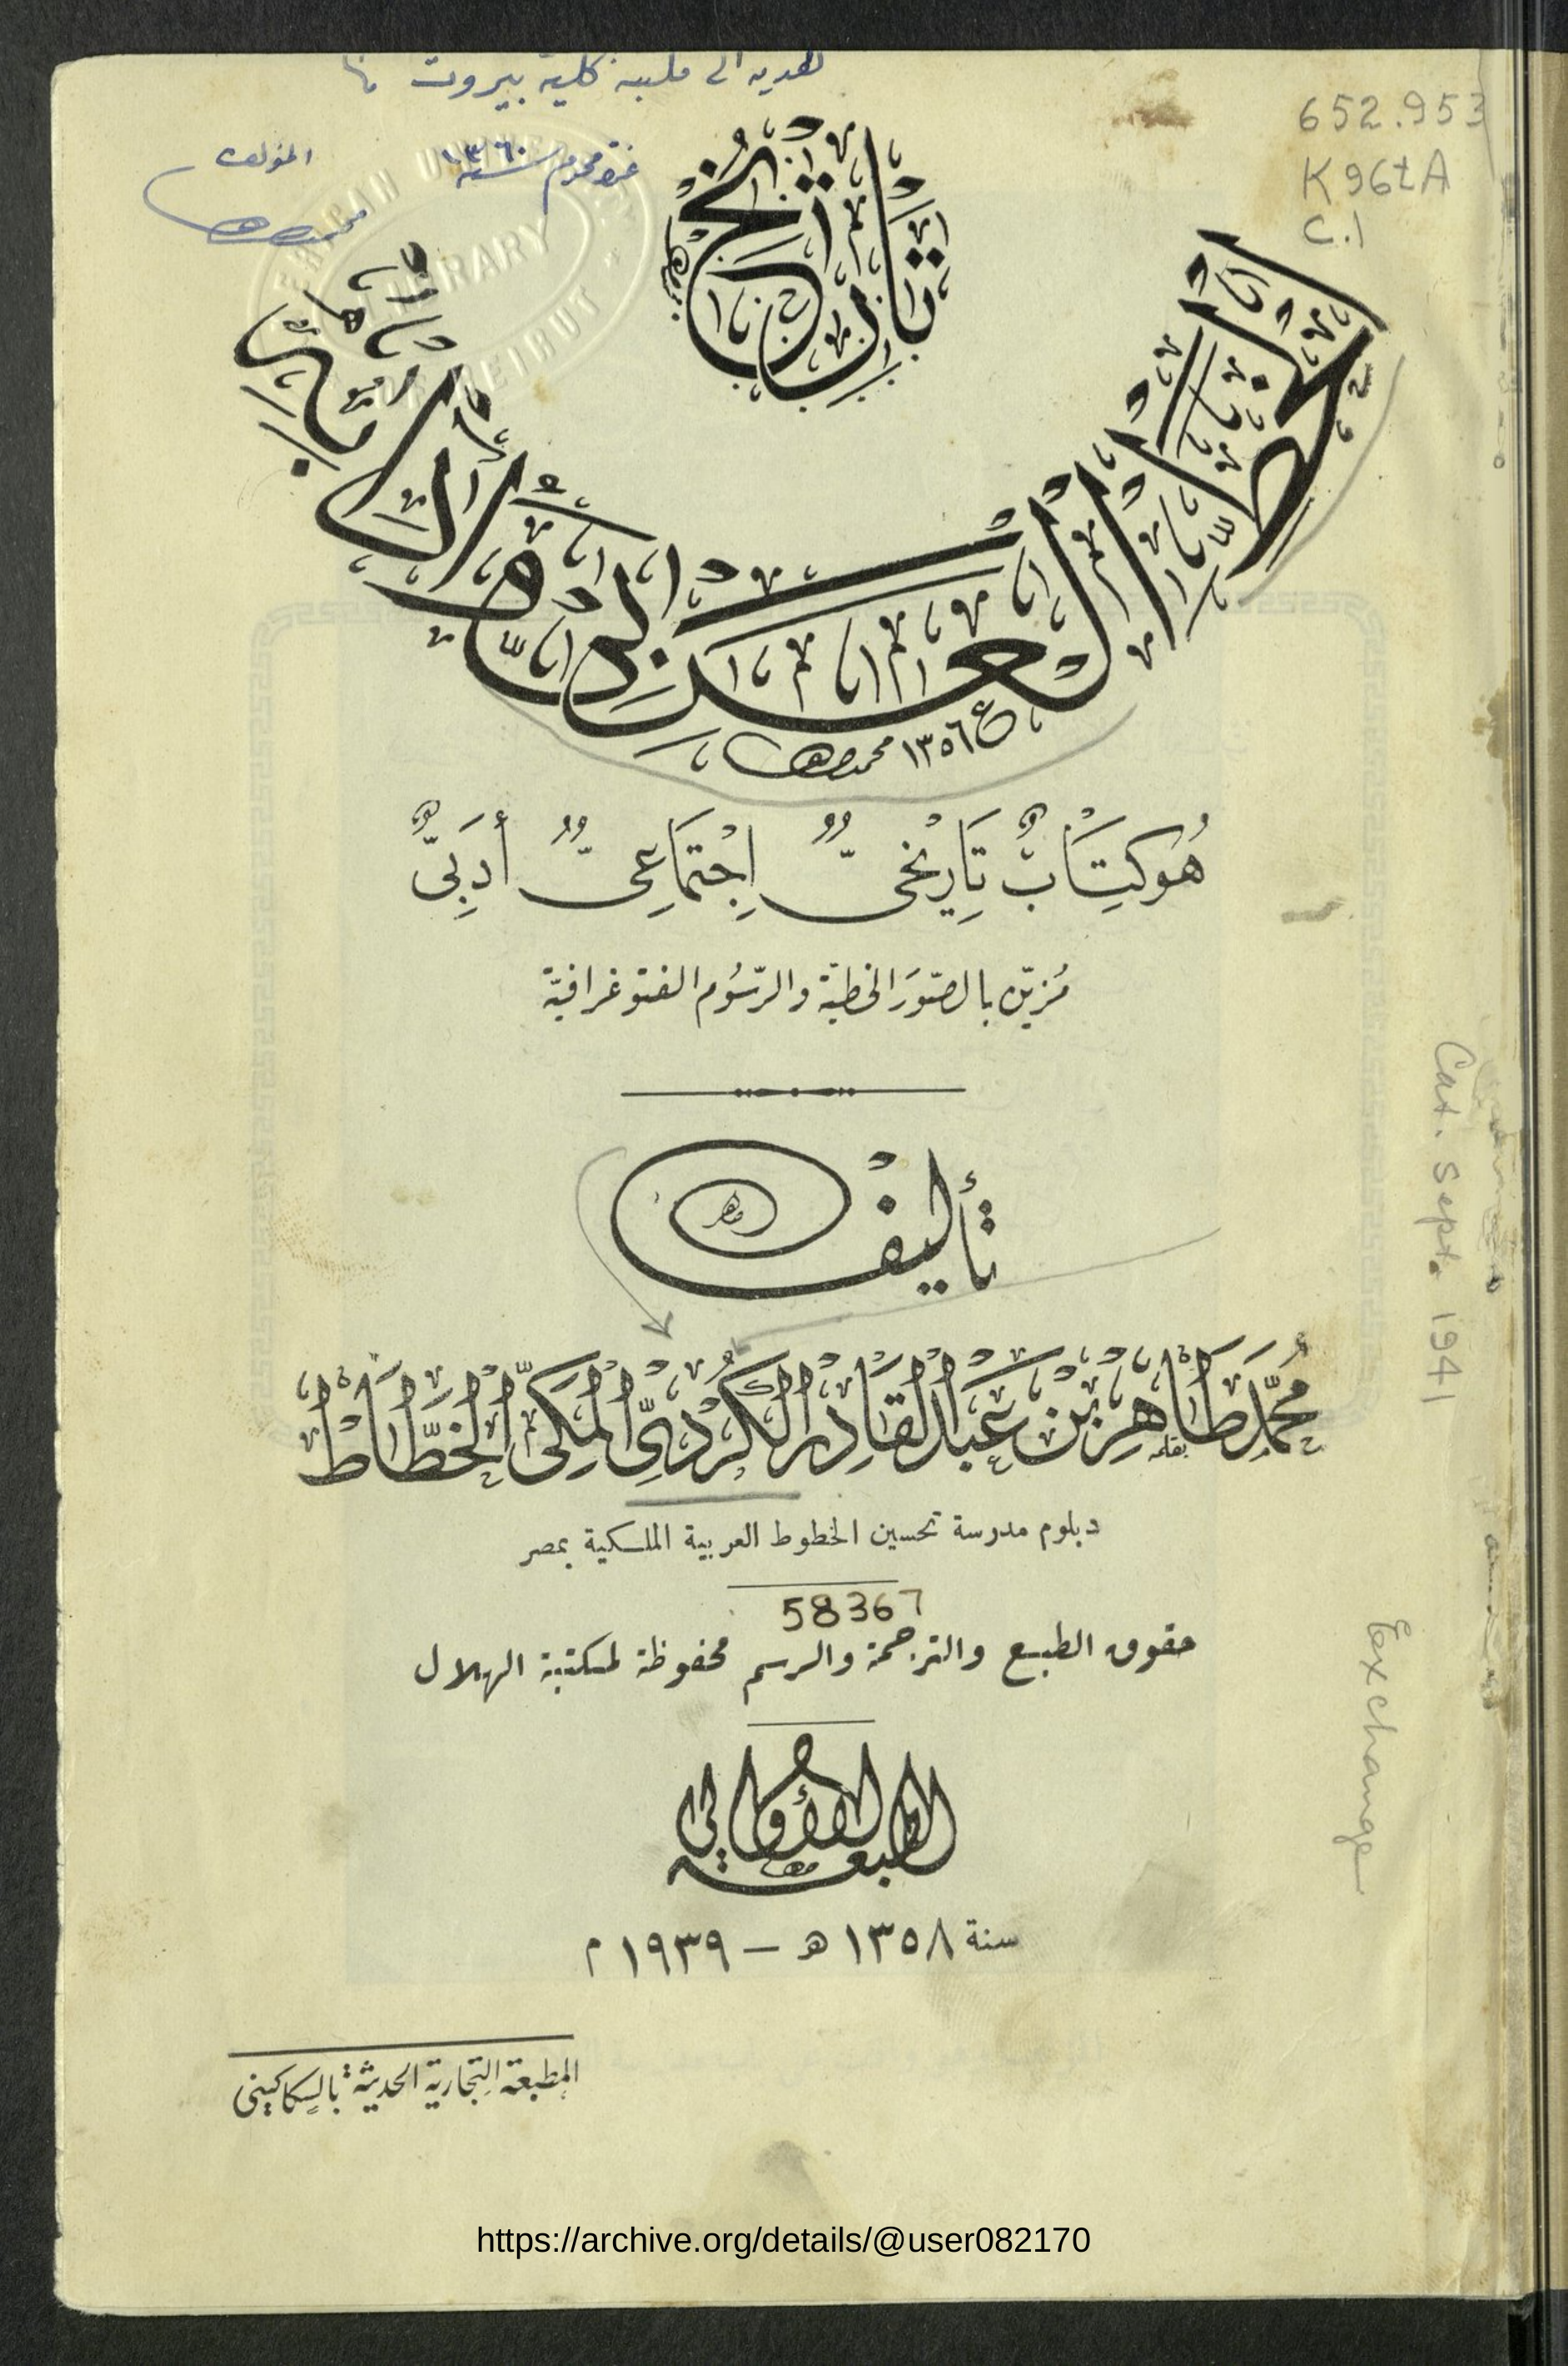 هدية الى مكتبة كلية بيروت
652.953
K96tA
c.1
غرة محرم سنة ١٣٦٠
المؤلف
محمد طاهر
LIBRARY
BEIRUT
تاريخ
الخط العربي وآدابه
١٣٥٦ محمد طاهر
هُوَ كِتَابٌ تَارِيْخىٌّ اِجْتِمَاعِىٌّ أَدَبِىٌّ
مُزيّن بالصّوَر الخطيّة والرّسُوم الفتوغرافيّة
تأليف
مُحَمَّد طَاهِر بْن عَبْد الْقَادِر الْكُرْدِىّ الْمَكِّىّ الْخَطَّاط
بقلمه
دبلوم مدرسة تحسين الخطوط العربية الملكية بمصر
58367
حقوق الطبع والترجمة والرسم محفوظة لمكتبة الهلال
الطبعة الأولى
سنة ١٣٥٨ هـ — ١٩٣٩ م
المطبعة التجارية الحديثة بالسكاكينى
Cat. Sept. 1941
Exchange
https://archive.org/details/@user082170